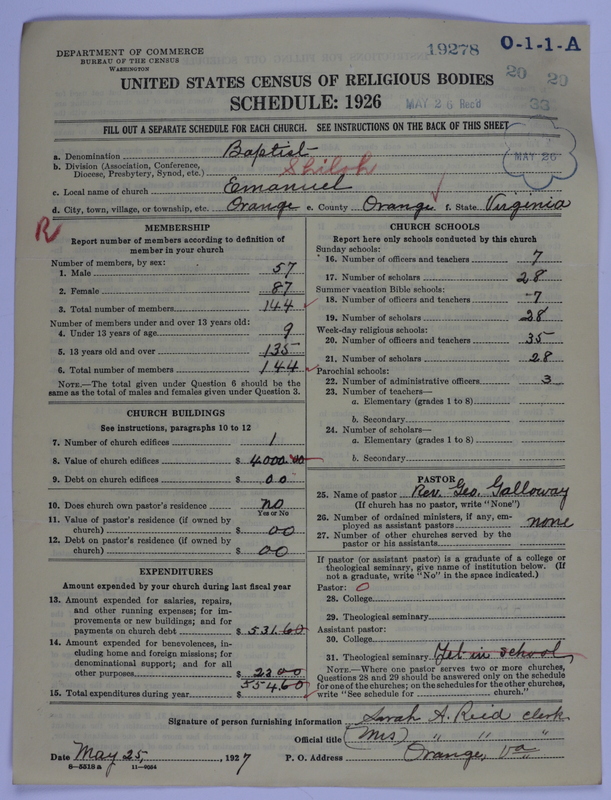 DEPARTMENT OF COMMERCE
BUREAU OF THE CENSUS
WASHINGTON
19278 O-1-1-A
20 29
33
UNITED STATES CENSUS OF RELIGIOUS BODIES
SCHEDULE: 1926
MAY 26 Rec'd
FILL OUT A SEPARATE SCHEDULE FOR EACH CHURCH. SEE INSTRUCTIONS ON THE BACK OF THIS SHEET
MAY 26
a. Denomination Baptist
b. Division (Association, Conference, Diocese, Presbytery, Synod, etc.) Shiloh
c. Local name of church Emanuel
d. City, town, village, or township, etc. Orange e. County Orange f. State Virginia
R
MEMBERSHIP
Report number of members according to definition of
member in your church
Number of members, by sex:
1. Male 57
2. Female 87
3. Total number of members 144
Number of members under and over 13 years old:
4. Under 13 years of age 9
5. 13 years old and over 135
6. Total number of members 144
NOTE.—The total given under Question 6 should be
same as the total of males and females given under Question 3.
CHURCH BUILDINGS
See instructions, paragraphs 10 to 12
7. Number of church edifices 1
8. Value of church edifices $ 4000.00
9. Debt on church edifices $ 00
10. Does church own pastor's residence no
Yes or No
11. Value of pastor's residence (if owned by
church) $ 00
12. Debt on pastor's residence (if owned by
church) $ 00
EXPENDITURES
Amount expended by your church during last fiscal year
13. Amount expended for salaries, repairs,
and other running expenses; for im-
provements or new buildings; and for
payments on church debt $ 531.60
14. Amount expended for benevolences, in-
cluding home and foreign missions; for
denominational support; and for all
other purposes $ 23.00
15. Total expenditures during year $ 554.60
CHURCH SCHOOLS
Report here only schools conducted by this church
Sunday schools:
16. Number of officers and teachers 7
17. Number of scholars 28
Summer vacation Bible schools:
18. Number of officers and teachers 7
19. Number of scholars 28
Week-day religious schools:
20. Number of officers and teachers 35
21. Number of scholars 28
Parochial schools:
22. Number of administrative officers 3
23. Number of teachers—
a. Elementary (grades 1 to 8)
b. Secondary
24. Number of scholars—
a. Elementary (grades 1 to 8)
b. Secondary
PASTOR
25. Name of pastor Rev. Geo. Galloway
(If church has no pastor, write "None")
26. Number of ordained ministers, if any, em-
ployed as assistant pastors none
27. Number of other churches served by the
pastor or his assistants
If pastor (or assistant pastor) is a graduate of a college or
theological seminary, give name of institution below. (If
not a graduate, write "No" in the space indicated.)
Pastor: 0
28. College
29. Theological seminary
Assistant pastor:
30. College
31. Theological seminary Yet in school
NOTE.—Where one pastor serves two or more churches,
Questions 28 and 29 should be answered only on the schedule
for one of the churches; on the schedules for the other churches,
write "See schedule for church."
Signature of person furnishing information Sarah A. Reid clerk
Official title (Mrs) " " "
Date May 25, 1927 P. O. Address Orange, Va
8-5518 a 11-9054